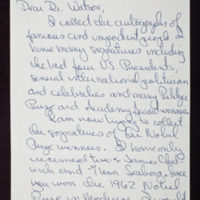 Dear Dr. Watson,
I collect the autographs of
famous and important people. I
have many signatures including
the last four US Presidents,
several international politician
and celebrities and many Pulitzer
Prize and Academy Award winners.
I am now trying to collect
the signatures of six Nobel
Prize winners. I have only
received two - James
with and Glenn Seaborg. Since
you won the 1962 Nobel
Prize in Medicine, I would